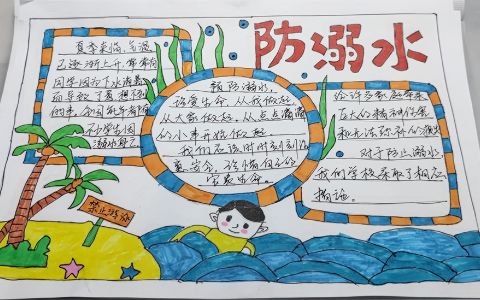 防溺水
夏季来临,气温
已逐渐上升,常常有
同学因为下水消暑
而导致了意想不到
的事,全国每年有
不少学生因
溺水身亡
预防溺水,
珍爱生命,从我做起
从大家做起,从点点滴滴
的小事开始做起
我们应该时时刻刻注
意安全,珍惜自己的
宝贵生命。
给许多家庭带来
巨大的精神伤害
和无法弥补的损失
对于防止溺水,
我们学校采取了相应
措施。
禁止游泳